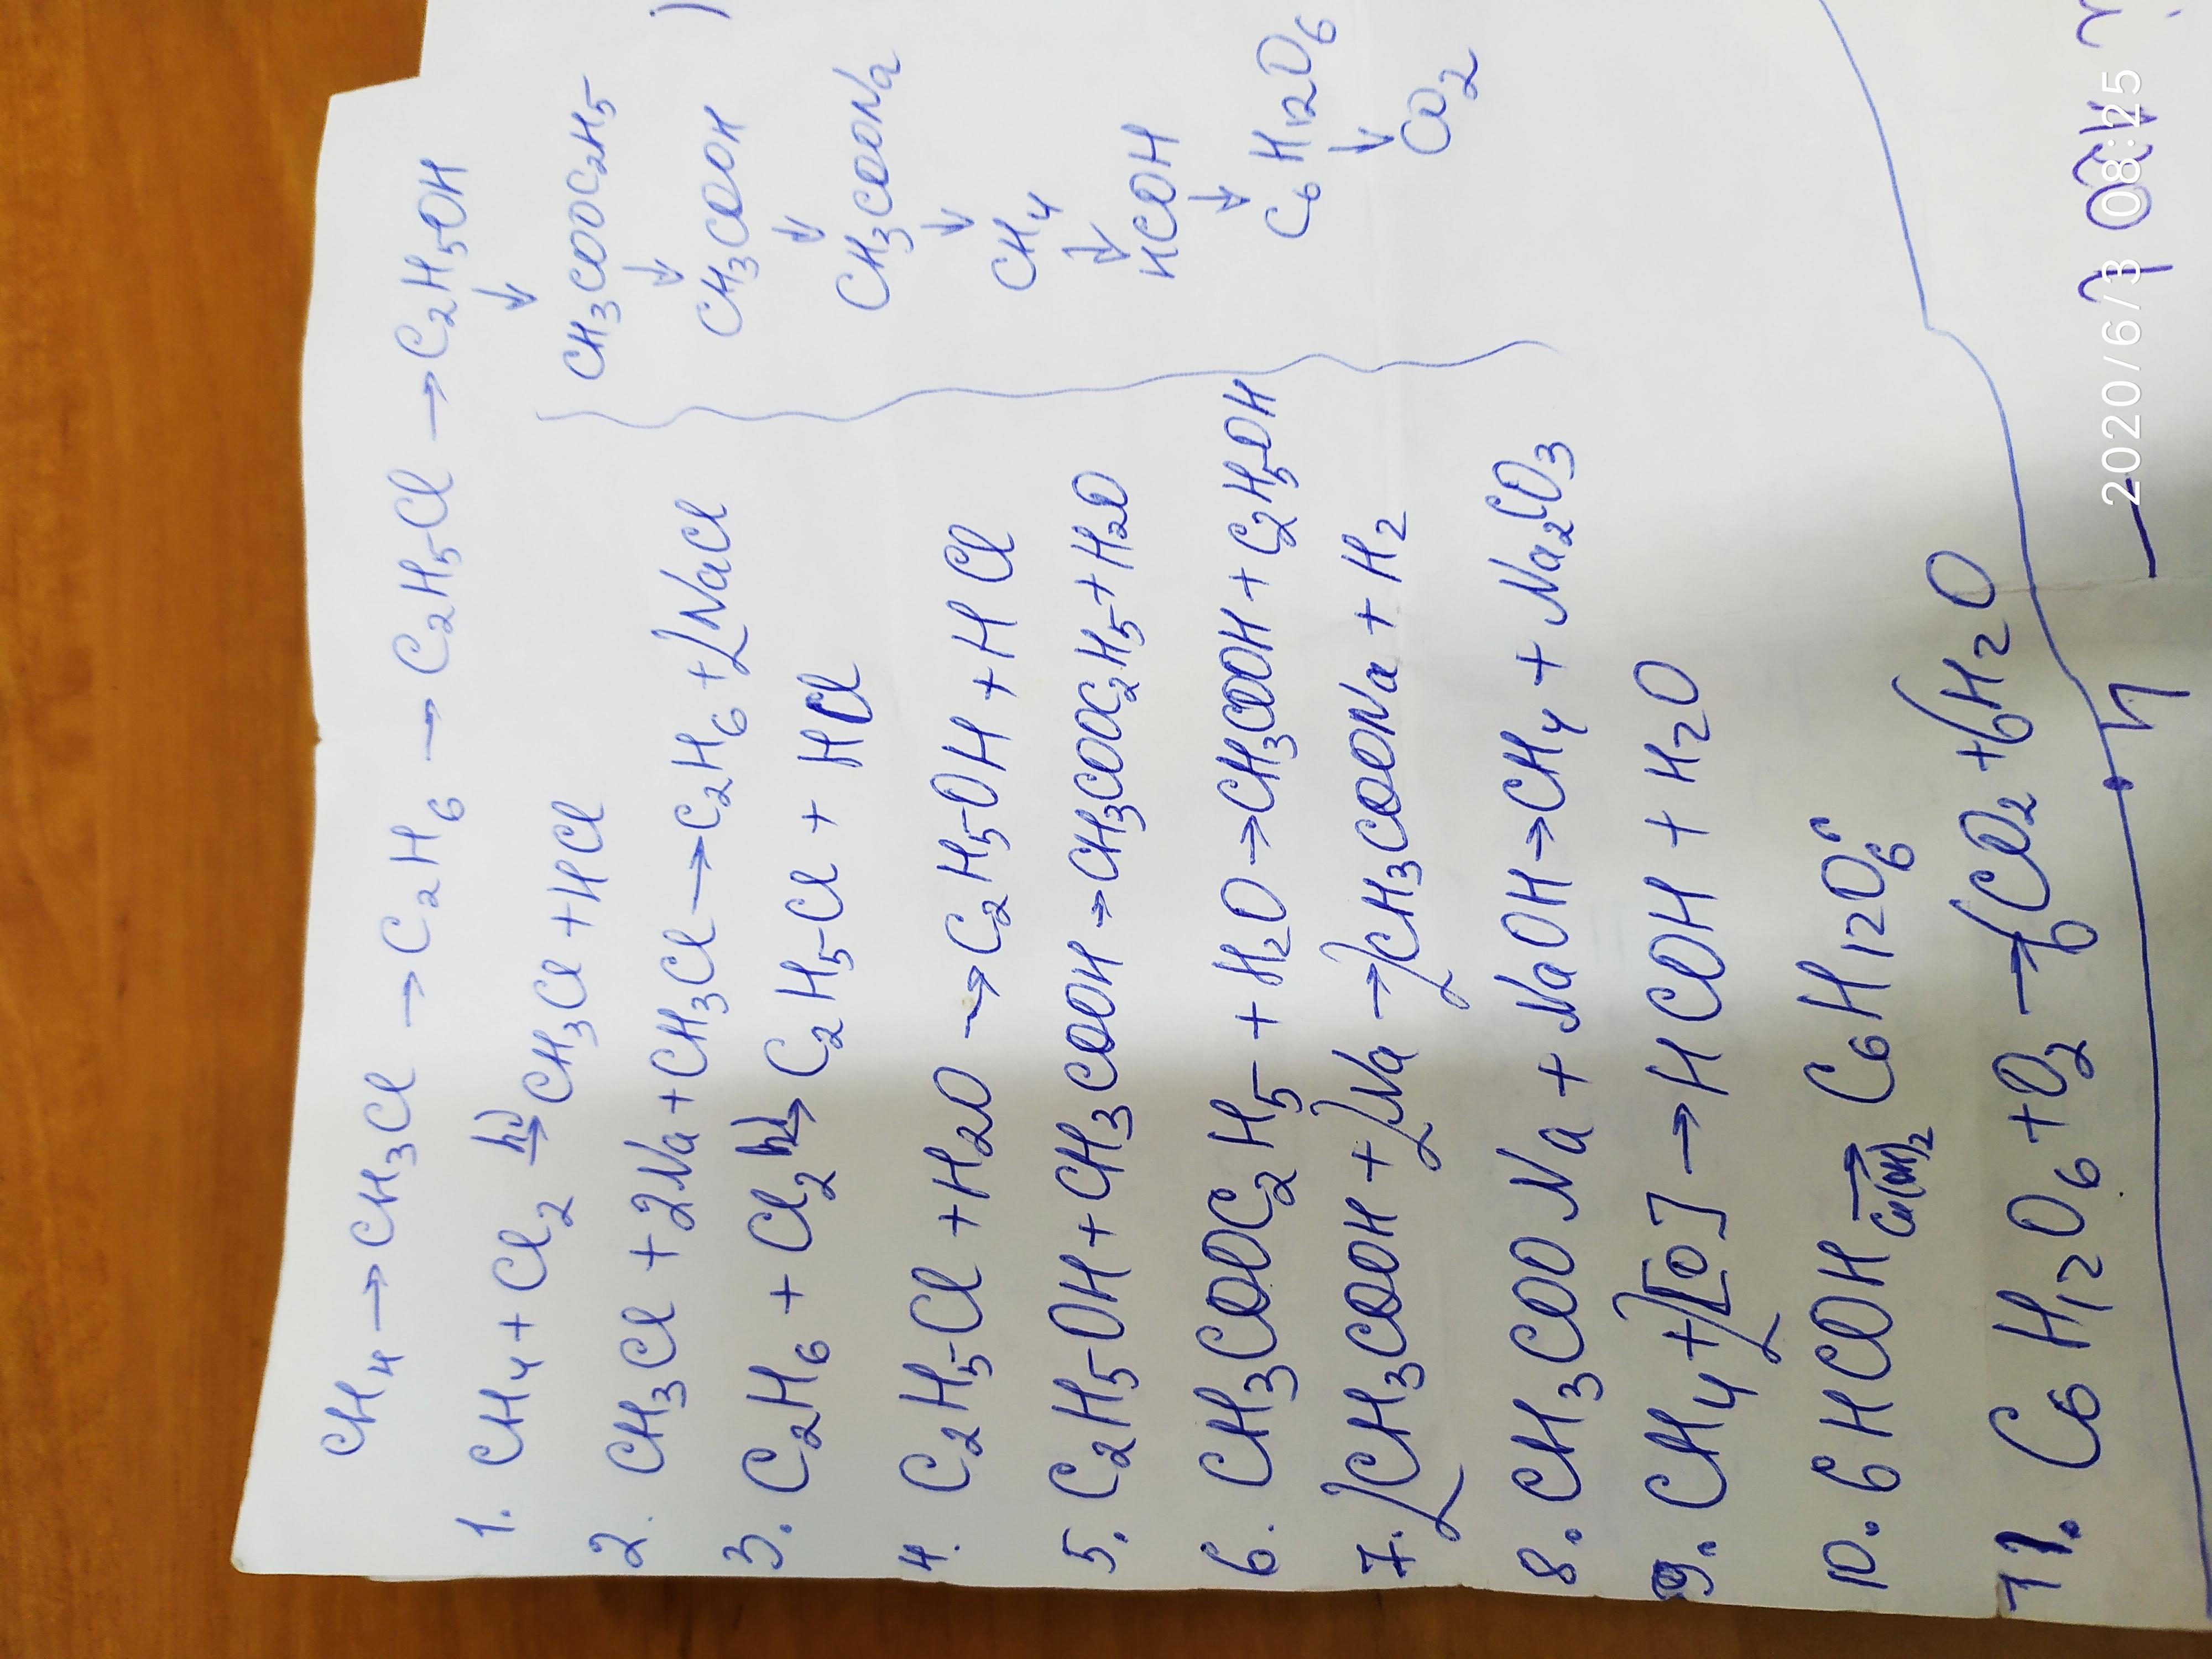 CH4 → CH3Cl → C2H6 → C2H5Cl → C2H5OH
↓
CH3COOC2H5
↓
CH3COOH
↓
CH3COONa
↓
CH4
↓
HCOH
↓
C6H12O6
↓
CO2
1. CH4 + Cl2 hν→ CH3Cl + HCl
2. CH3Cl + 2Na + CH3Cl → C2H6 + 2NaCl
3. C2H6 + Cl2 hν→ C2H5-Cl + HCl
4. C2H5-Cl + H2O → C2H5-OH + HCl
5. C2H5OH + CH3COOH → CH3COOC2H5 + H2O
6. CH3COOC2H5 + H2O → CH3COOH + C2H5OH
7. 2CH3COOH + 2Na → 2CH3COONa + H2
8. CH3COONa + NaOH → CH4 + Na2CO3
9. CH4 + 2[O] → HCOH + H2O
10. 6HCOH Ca(OH)2→ C6H12O6
11. C6H12O6 + O2 → 6CO2 + 6H2O
2020/6/3 08:25